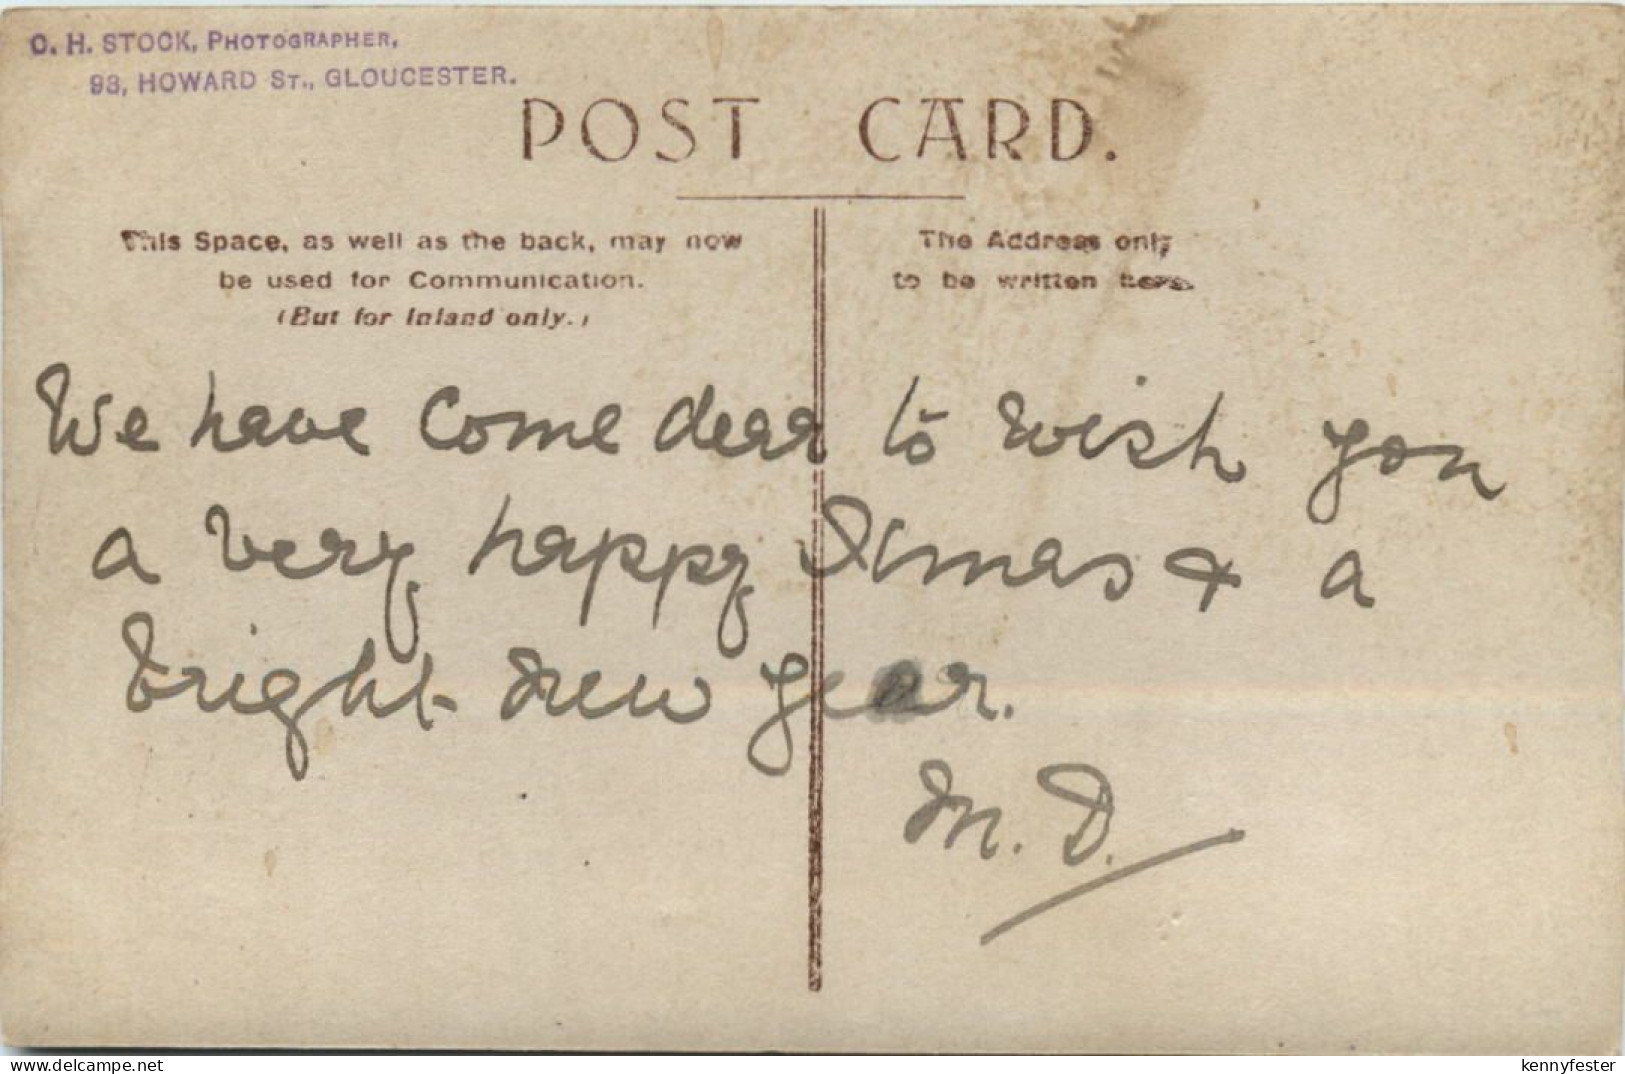 C. H. STOCK, PHOTOGRAPHER,
93, HOWARD ST., GLOUCESTER.
POST CARD.
This Space, as well as the back, may now
be used for Communication.
(But for Inland only.)
The Address only
to be written here.
We have come dear to wish you
a very happy Xmas & a
bright New Year.
M. D.
www.delcampe.net
kennyfester